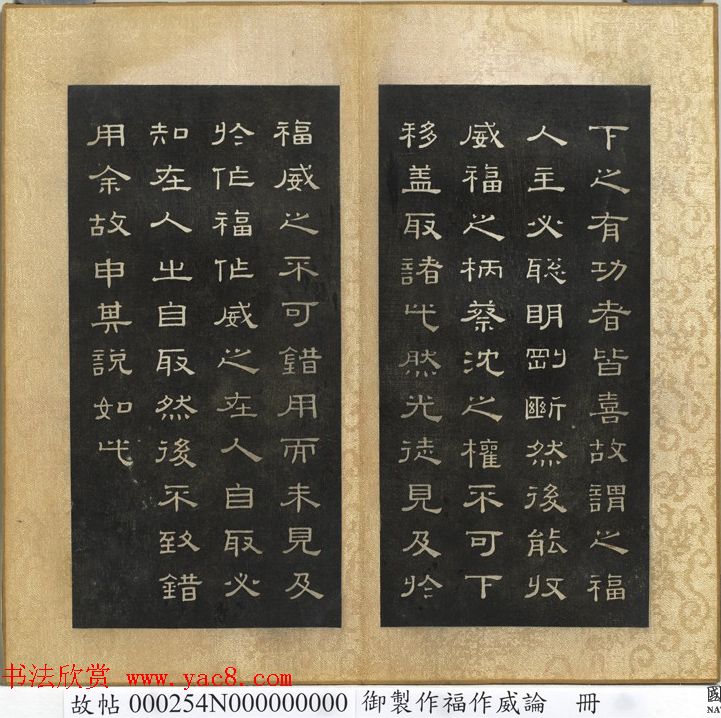 下之有功者皆喜故謂之福
人主必聡明剛斷然後能收
威福之柄蔡沈之權不可下
移蓋取諸此然光徒見及於
福威之不可錯用而未見及
於作福作威之在人自取必
知在人之自取然後不致錯
用余故申其說如此
书法欣赏 www.yac8.com
故帖 000254N000000000 御製作福作威論 冊
國
NA